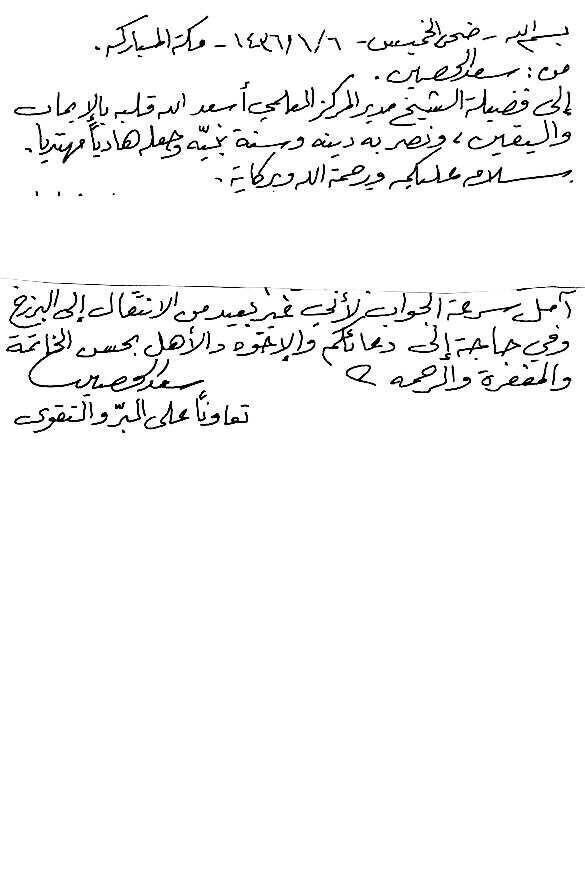 بسم الله - ضحى الخميس - ١٤٣٦/١/٦ - مكة المباركة.
من: سعد الحصين.
إلى فضيلة الشيخ مدير المركز العلمي أسعد الله قلبه بالإيمان
واليقين، ونصر به دينه وسنة نبيّه وجعله هادياً مهتديا.
سلام عليكم ورحمة الله وبركاته.
آمل سرعة الجواب لأني غير بعيد من الانتقال إلى البرزخ
وفي حاجة إلى دعائكم والإخوه والأهل بحسن الخاتمة
والمغفرة والرحمه
سعد الحصين
تعاوناً على البرّ والتقوى